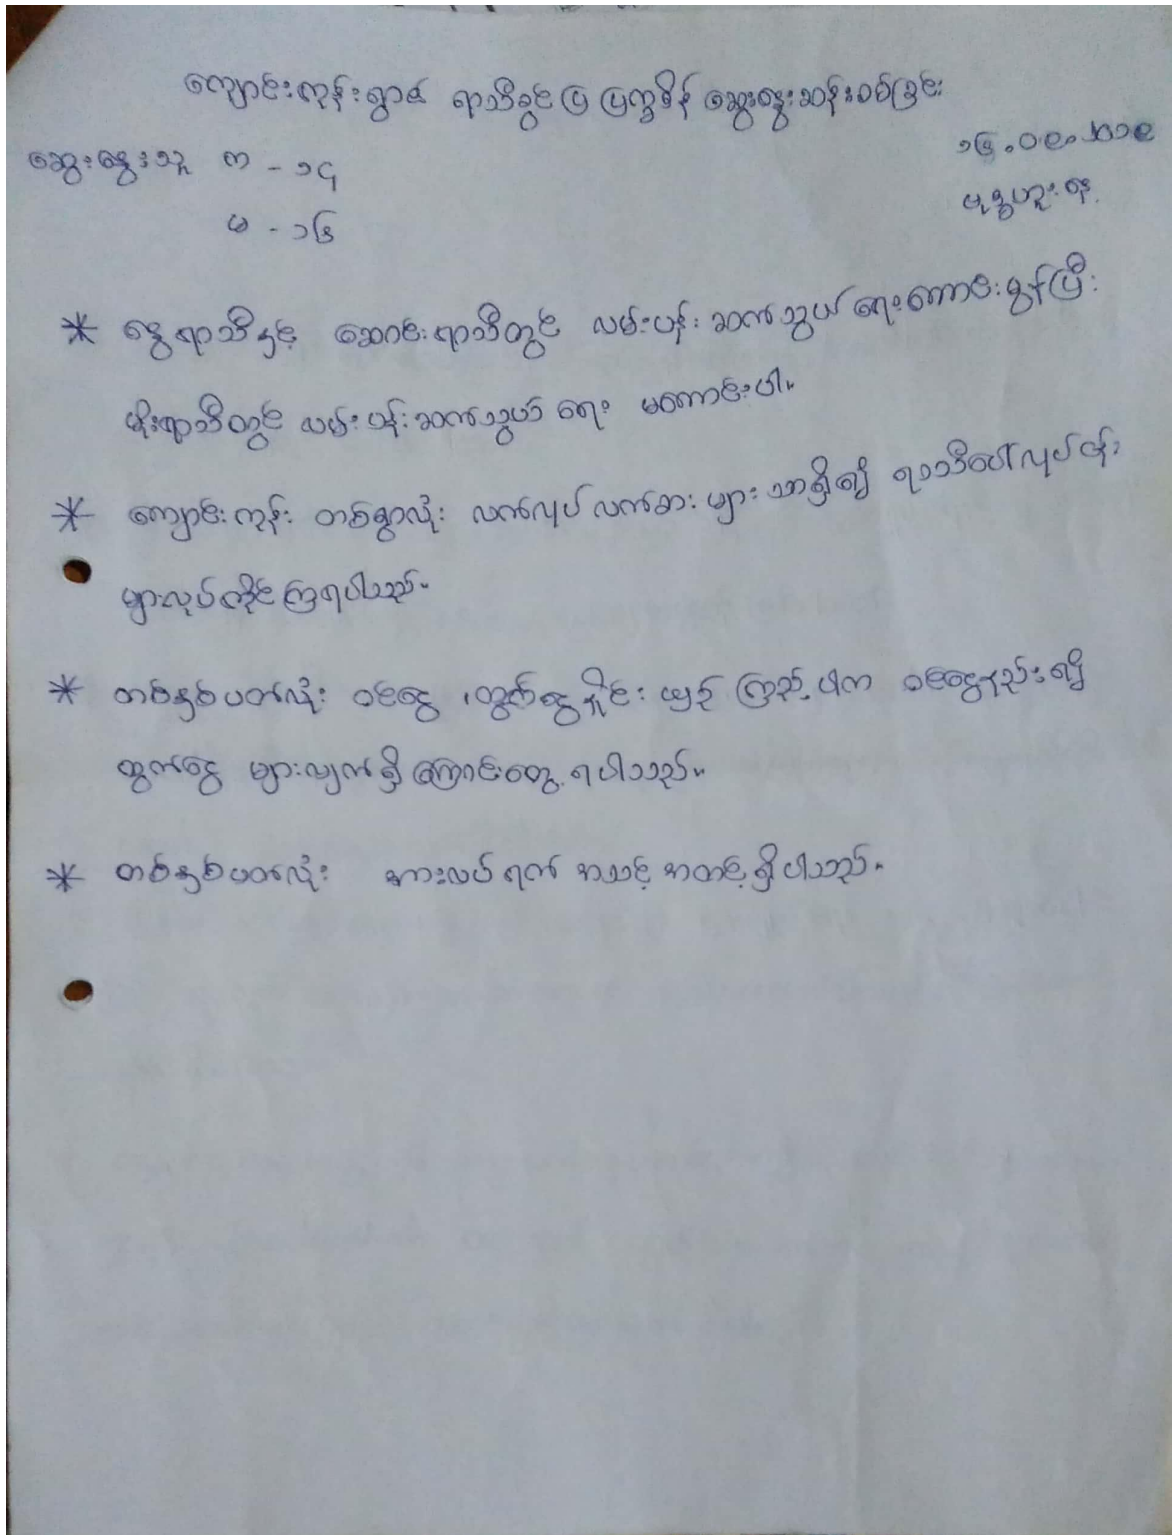 ကျောင်းကုန်းရွာ၏ ရာသီခွင်ပြ ပြက္ခဒိန် ဆွေးနွေးဆန်းစစ်ခြင်း
၁၆.၀၉.၂၀၁၉
ဆွေးနွေးသူ ကျ - ၁၄
ဗုဒ္ဓဟူးနေ့
မ - ၁၆
* နွေရာသီနှင့် ဆောင်းရာသီတွင် လမ်းပန်းဆက်သွယ်ရေးကောင်းမွန်ပြီး
မိုးရာသီတွင် လမ်းပန်းဆက်သွယ်ရေး မကောင်းပါ။
* ကျောင်းကုန်း တစ်ရွာလုံး လက်လုပ်လက်စားများသာရှိ၍ ရာသီပေါ်လုပ်ငန်း
များလုပ်ကိုင်ကြရပါသည်။
* တစ်နှစ်ပတ်လုံး ဝင်ငွေ၊ ထွက်ငွေနှိုင်းယှဉ်ကြည့်ပါက ဝင်ငွေနည်း၍
ထွက်ငွေ များလျက်ရှိကြောင်းတွေ့ရပါသည်။
* တစ်နှစ်ပတ်လုံး အားလပ်ရက် အသင့်အတင့်ရှိပါသည်။